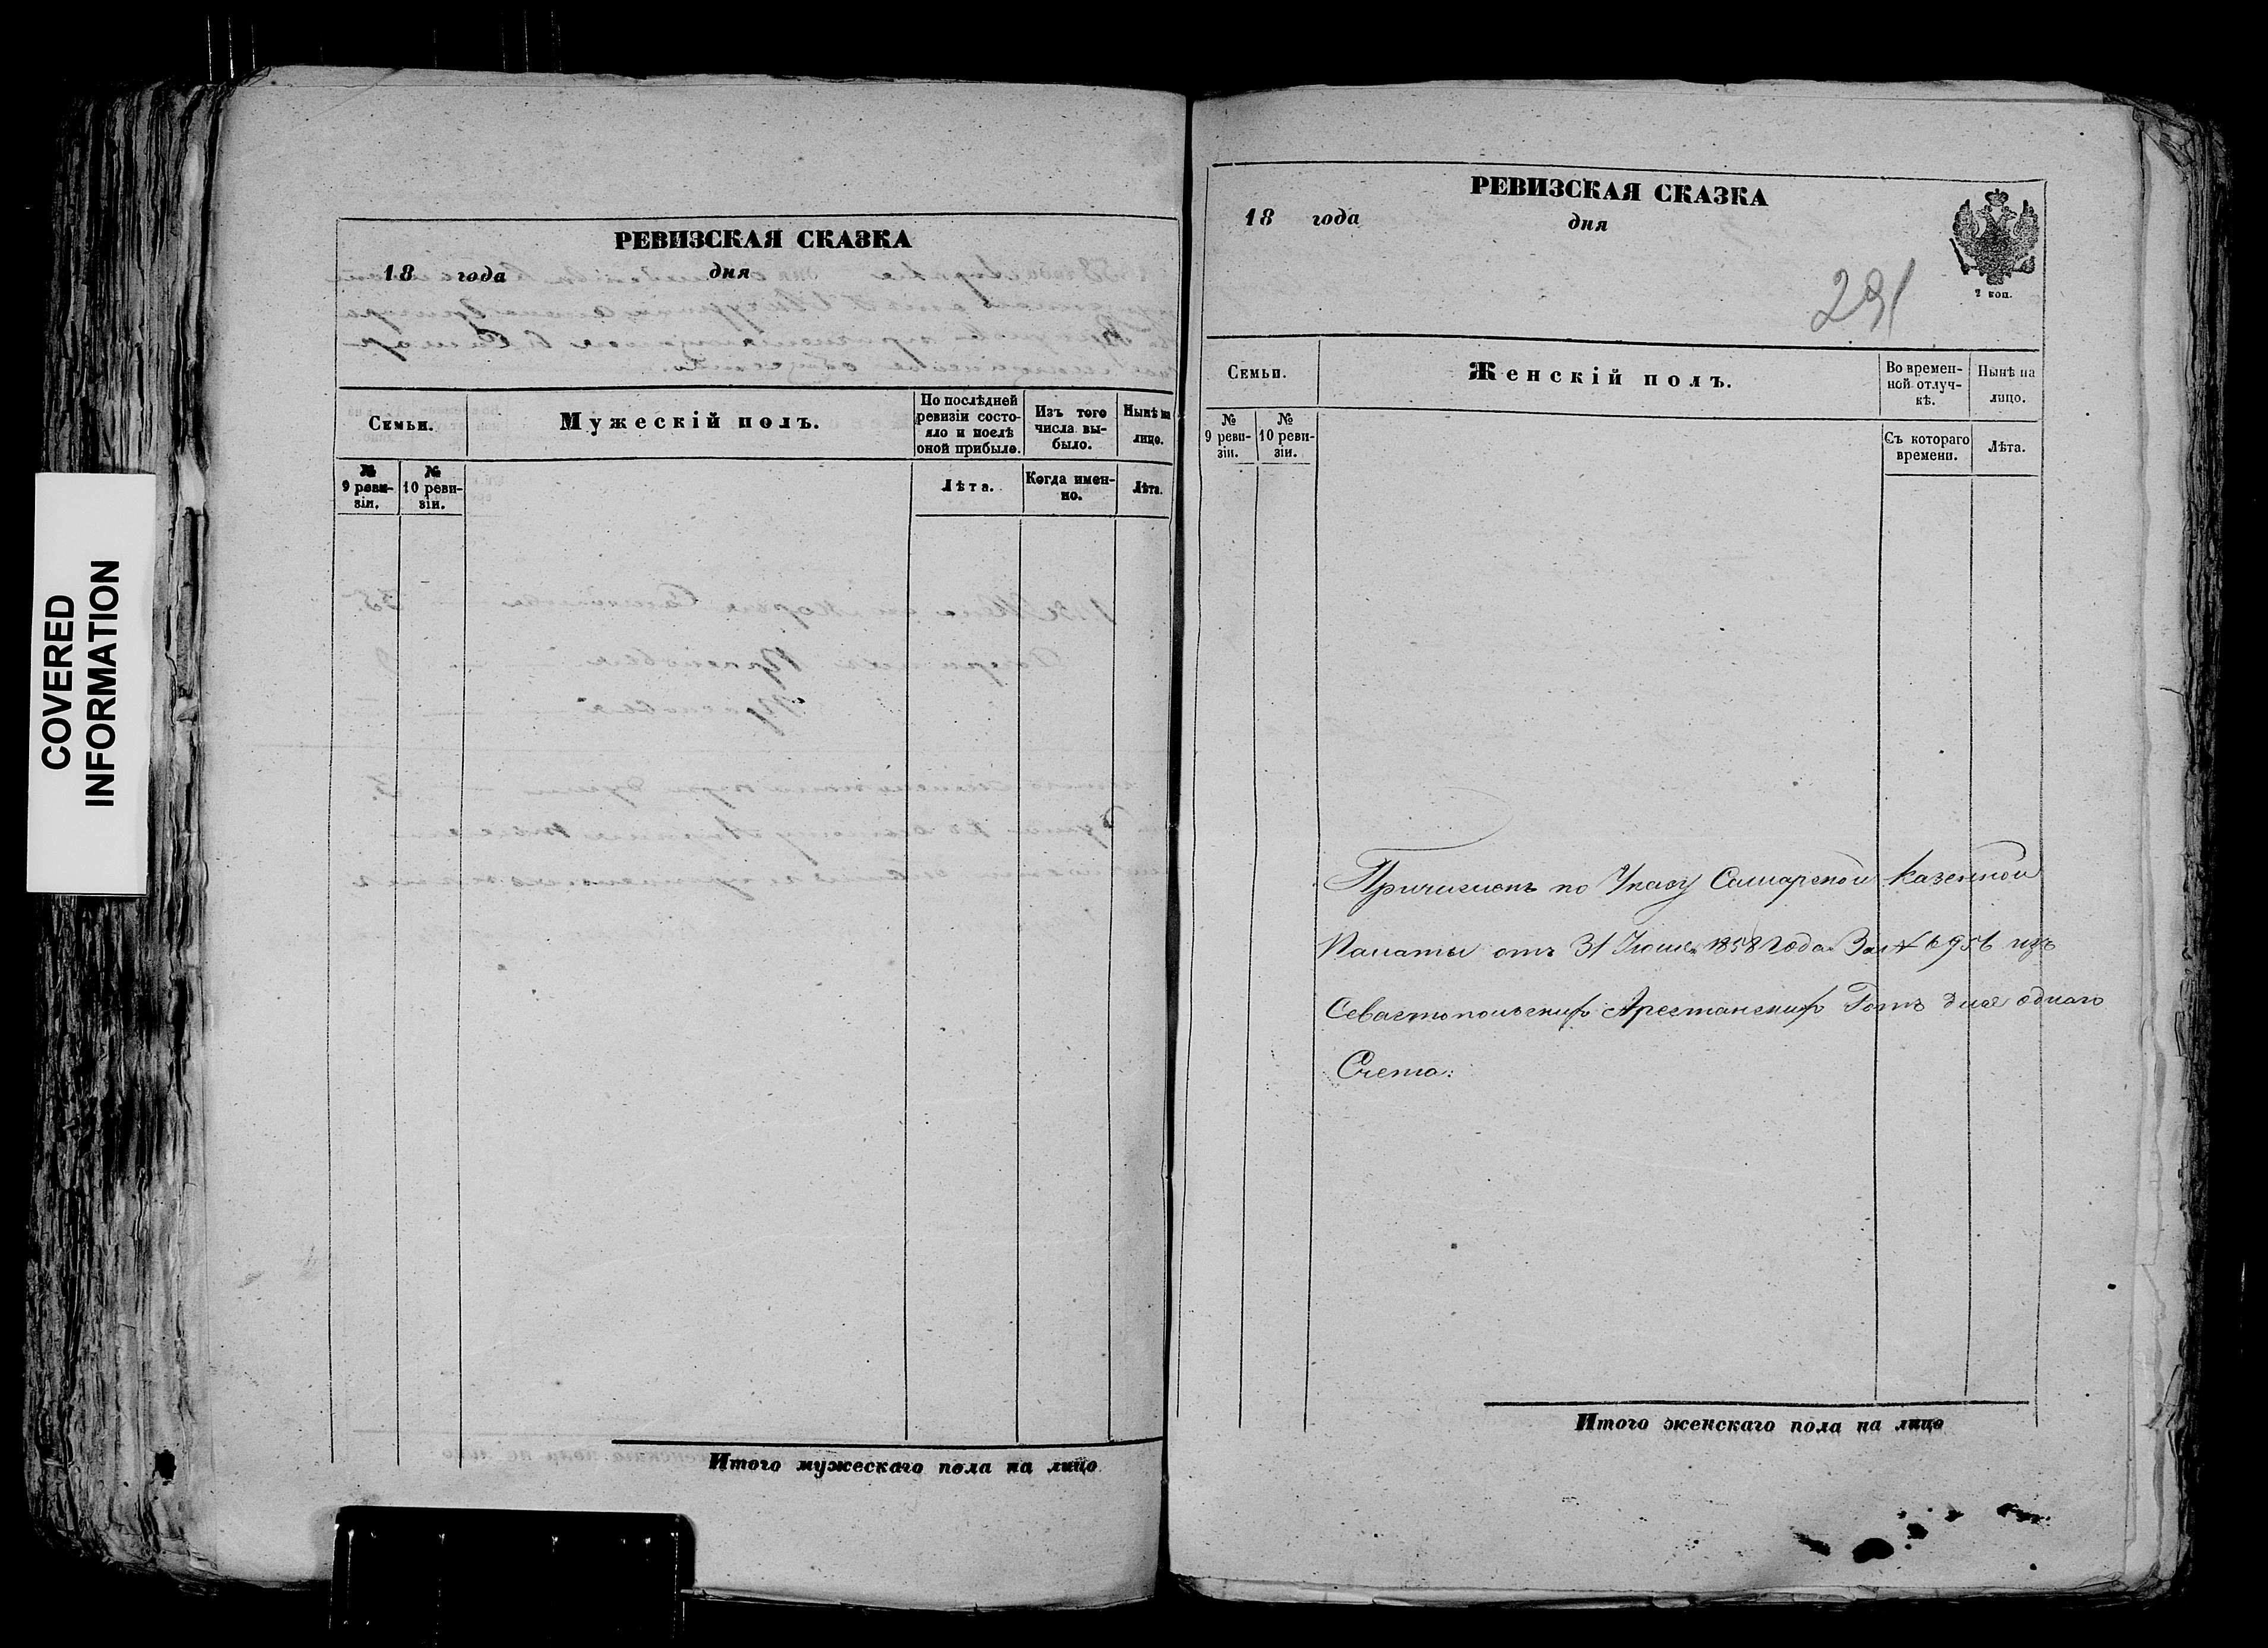 COVERED
INFORMATION
РЕВИЗСКАЯ СКАЗКА
18 года дня
Семьи.
Мужескій полъ.
По послѣдней
ревизіи состо-
яло и послѣ
оной прибыло.
Изъ того
числа вы-
было.
Нынѣ на
лицо.
№
9 реви-
зіи.
№
10 реви-
зіи.
Лѣта.
Когда имен-
но.
Лѣта.
Итого мужескаго пола на лицо
РЕВИЗСКАЯ СКАЗКА
18 года дня
2 коп.
291
Семьи.
Женскій полъ.
Во времен-
ной отлуч-
кѣ.
Нынѣ на
лицо.
№
9 реви-
зіи.
№
10 реви-
зіи.
Съ котораго
времени.
Лѣта.
Причисленъ по Указу Самарской Казенной
Палаты отъ 31 Іюля 1858 Года За № 6956 изъ
Севастопольскихъ Арестанскихъ Ротъ для одного
Счета:
Итого женскаго пола на лицо